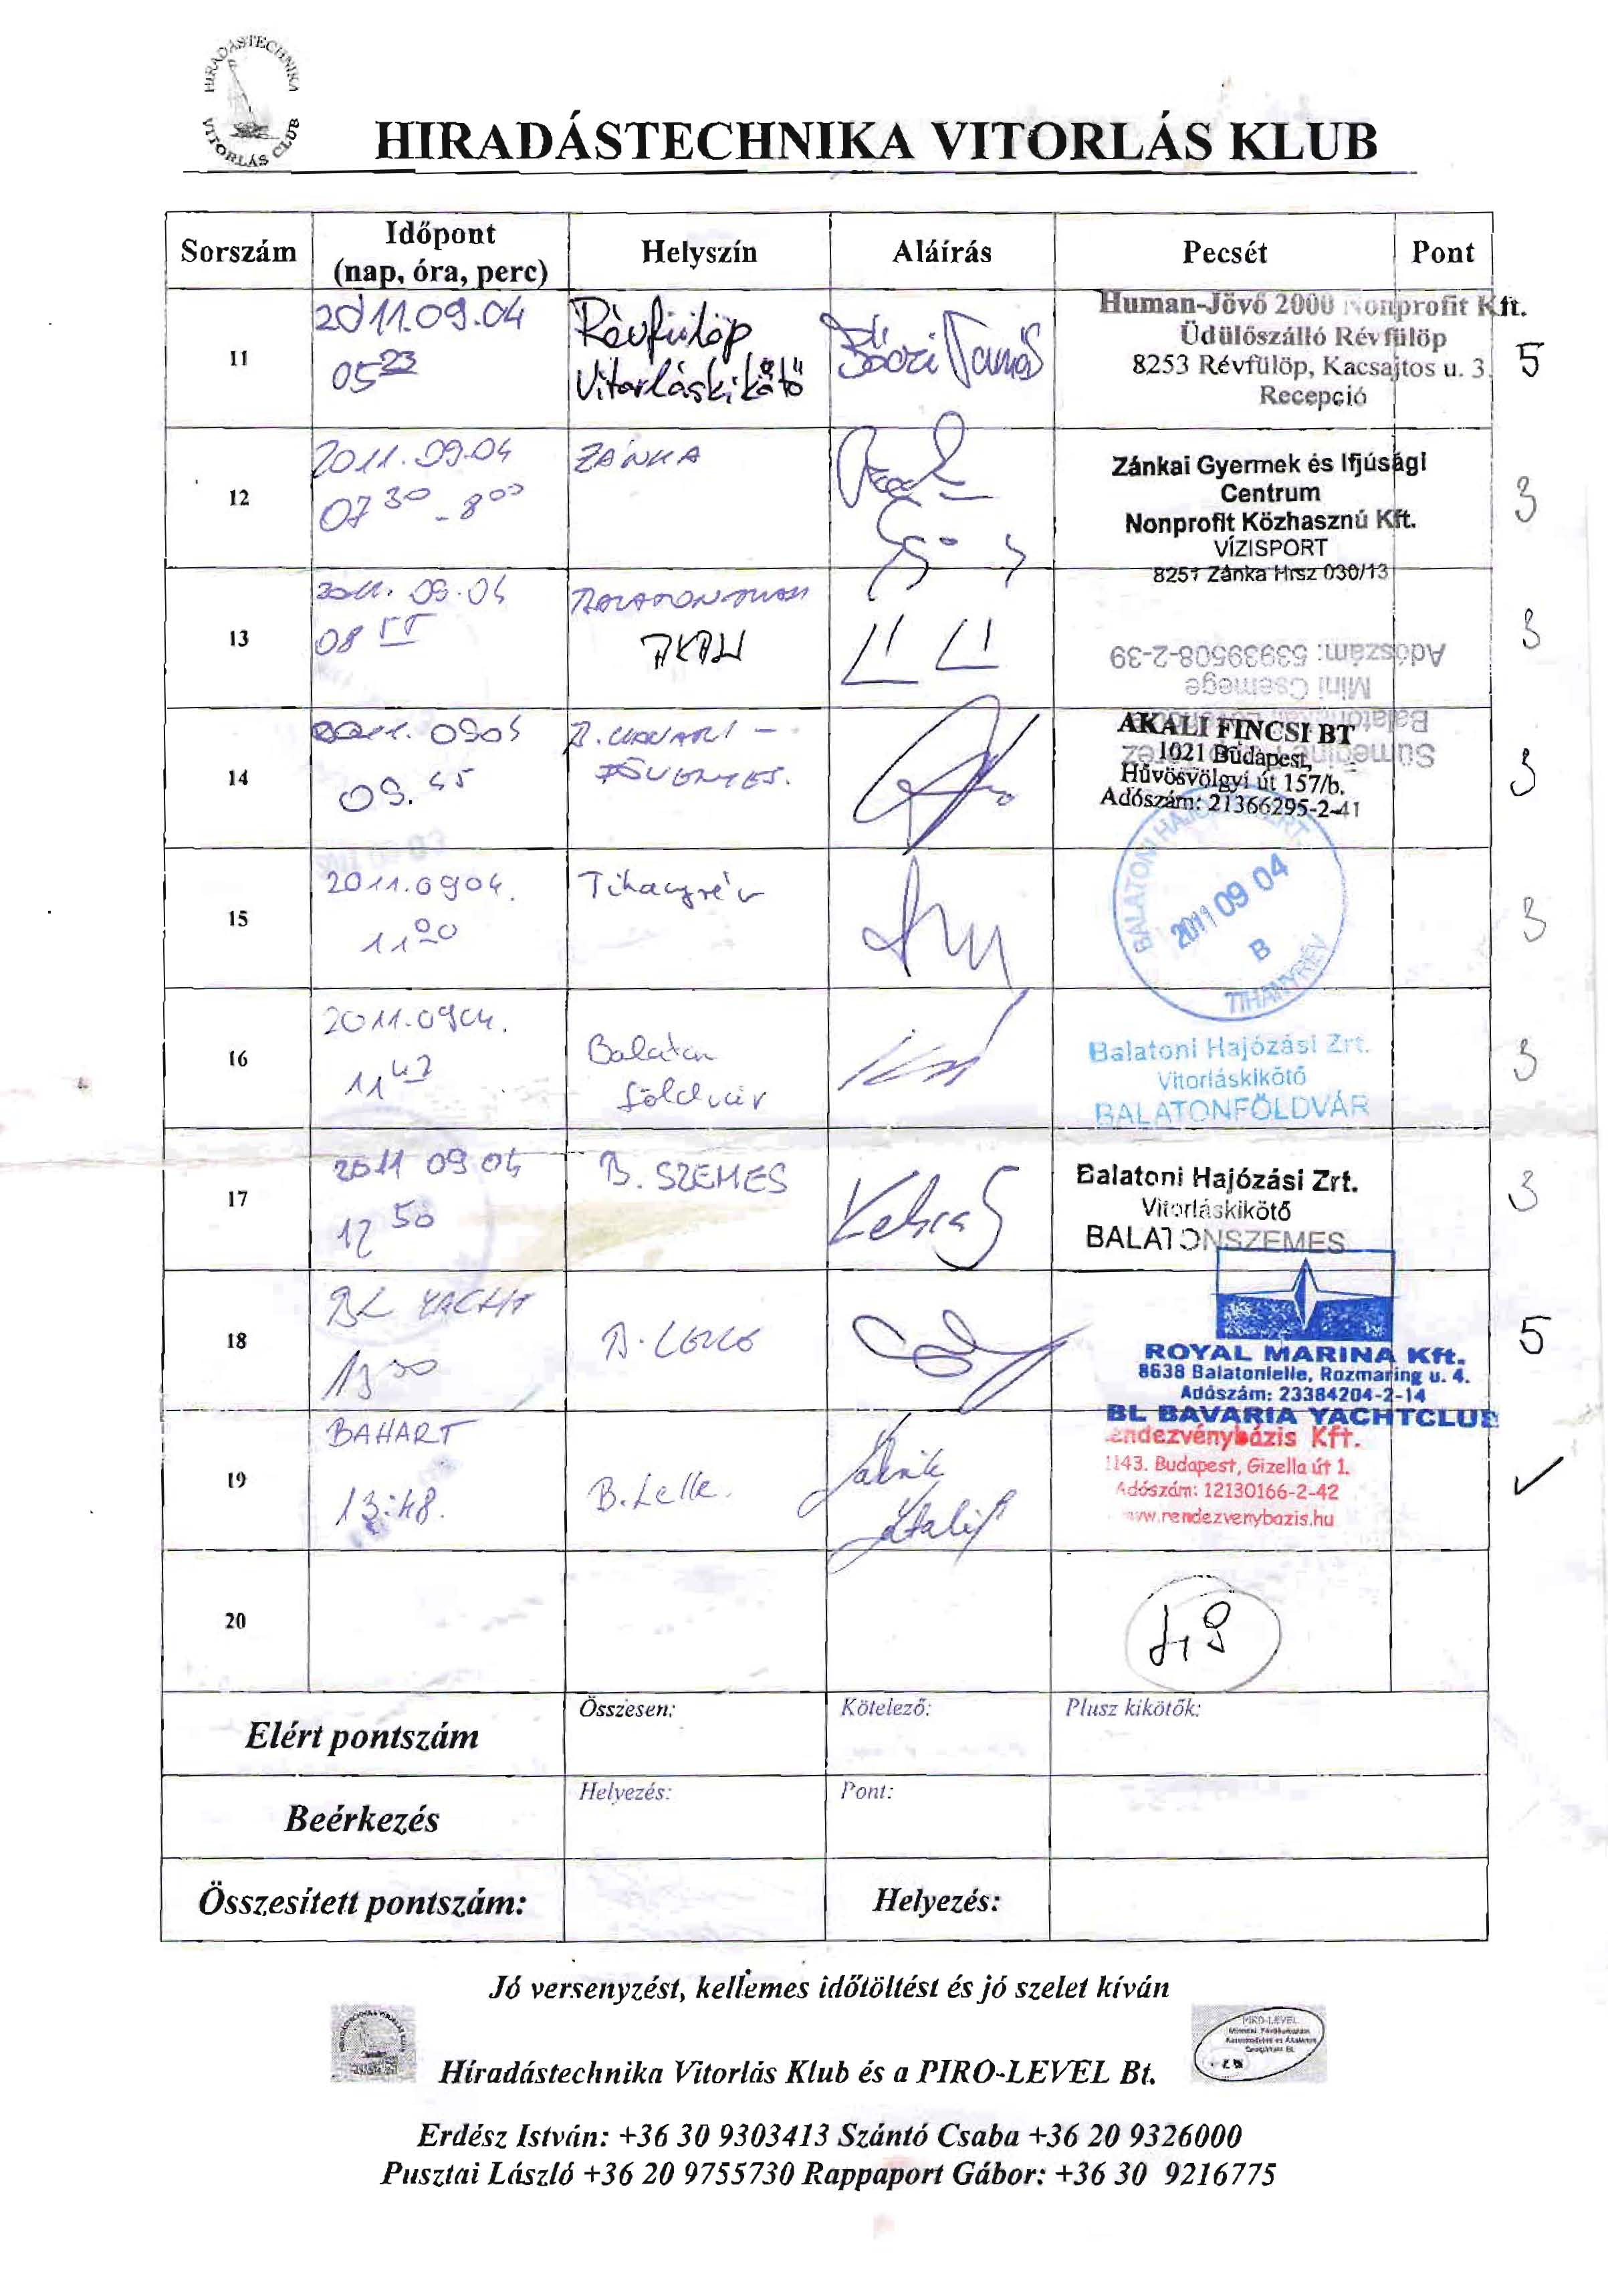 HIRADÁSTECHNIKA
VITORLÁS CLUB
HIRADÁSTECHNIKA VITORLÁS KLUB
Sorszám Időpont (nap, óra, perc) Helyszín Aláírás Pecsét Pont
11
2011.09.04
05 23
Révfülöp
Vitorláskikötő
Human-Jövő 2000 Nonprofit Kft.
Üdülőszálló Révfülöp
8253 Révfülöp, Kacsajtos u. 3.
Recepció
5
12
2011.09.04
07 30 - 8 00
ZÁNKA
Zánkai Gyermek és Ifjúsági
Centrum
Nonprofit Közhasznú Kft.
VÍZISPORT
8251 Zánka Hrsz 030/13
3
13
2011.09.04
08 55
AKALI
Adószám: 53939508-2-39
Mini Csemege
3
14
2011.0904
09.45
B.UDVARI -
FÖVENYES.
AKALI FINCSI BT
1021 Budapest,
Hűvösvölgyi út 157/b.
Adószám: 21366295-2-41
3
15
2011.0904.
11 20
Tihanyrév
BALATONI HAJÓZÁSI ZRT.
2011 09 04
B
TIHANYRÉV
3
16
2011.0904.
11 47
Balaton
földvár
Balatoni Hajózási Zrt.
Vitorláskikötő
BALATONFÖLDVÁR
3
17
2011 09 04
12 50
B. SZEMES
Balatoni Hajózási Zrt.
Vitorláskikötő
BALATONSZEMES
3
18
BL YACHT
13 30
B. LELLE
ROYAL MARINA Kft.
8638 Balatonlelle, Rozmaring u. 4.
Adószám: 23384204-2-14
BL BAVARIA YACHTCLUB
5
19
BAHART
13:48.
B. Lelle.
endezvénybázis Kft.
1143. Budapest, Gizella út 1.
Adószám: 12130166-2-42
www.rendezvenybazis.hu
20
49
Elért pontszám Összesen: Kötelező: Plusz kikötők:
Beérkezés Helyezés: Pont:
Összesített pontszám: Helyezés:
Jó versenyzést, kellemes időtöltést és jó szelet kíván
PIRO-LEVEL
Híradástechnika Vitorlás Klub és a PIRO-LEVEL Bt.
Erdész István: +36 30 9303413 Szántó Csaba +36 20 9326000
Pusztai László +36 20 9755730 Rappaport Gábor: +36 30 9216775